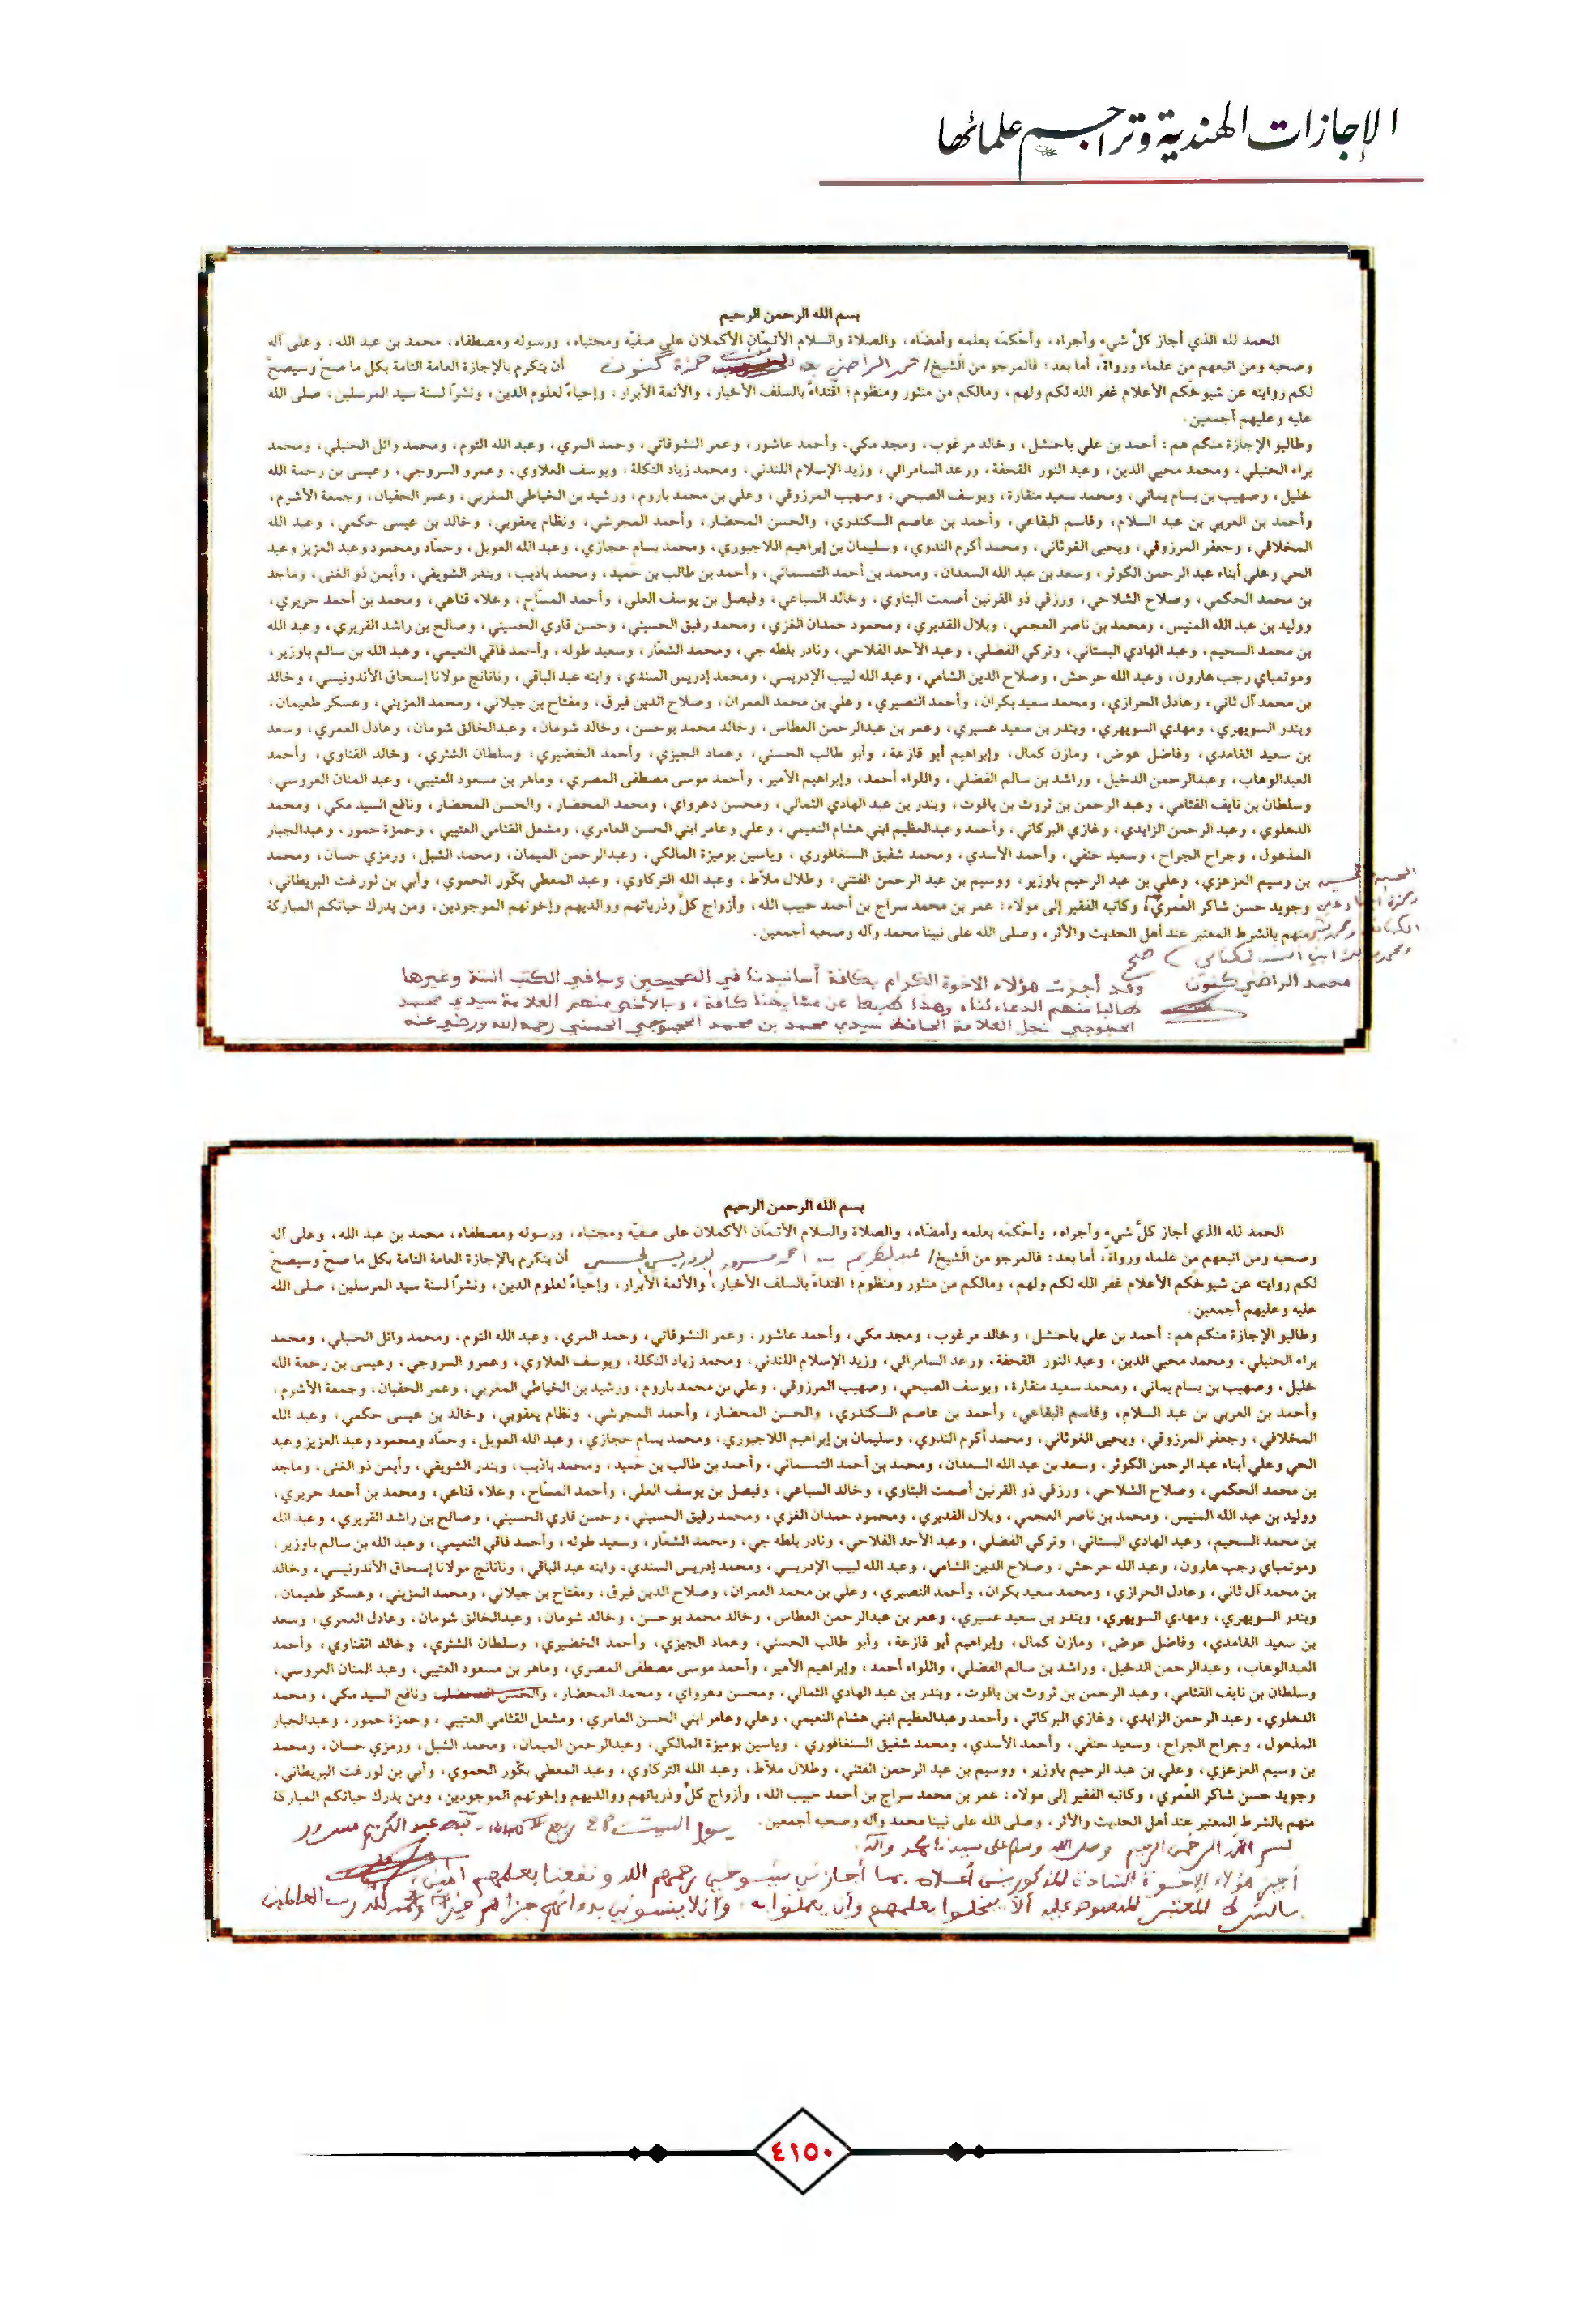 الإجازات الهندية وتراجم علمائها
بسم الله الرحمن الرحيم
الحمد لله الذي أجاز كلَّ شيء وأجراه، وأحْكمَه بعلمه وأمضَاه، والصلاة والسلام الأتمّان الأكملان على صفيّه ومجتباه، ورسوله ومصطفاه، محمد بن عبد الله، وعلى آله
وصحبه ومن اتبعهم من علماء ورواة، أما بعد: فالمرجو من الشيخ/ محمد الراضي بن حمزة كنون أن يتكرم بالإجازة العامة التامة بكل ما صحّ وسيصحّ
لكم روايته عن شيوخكم الأعلام غفر الله لكم ولهم، ومالكم من منثور ومنظوم؛ اقتداءً بالسلف الأخيار، والأئمة الأبرار، وإحياءً لعلوم الدين، ونشرًا لسنة سيد المرسلين، صلى الله
عليه وعليهم أجمعين.
وطالبو الإجازة منكم هم: أحمد بن علي باحنشل، وخالد مرغوب، ومجد مكي، وأحمد عاشور، وعمر النشوقاتي، وحمد المري، وعبد الله التوم، ومحمد وائل الحنبلي، ومحمد
براء الحنبلي، ومحمد محيي الدين، وعبد النور القحفة، ورعد السامرائي، وزيد الإسلام اللندني، ومحمد زياد التكلة، ويوسف العلاوي، وعمرو السروجي، وعيسى بن رحمة الله
خليل، وصهيب بن بسام يماني، ومحمد سعيد منقارة، ويوسف الصبحي، وصهيب المرزوقي، وعلي بن محمد باروم، ورشيد بن الخياطي المغربي، وعمر الحفيان، وجمعة الأشرم،
وأحمد بن العربي بن عبد السلام، وقاسم البقاعي، وأحمد بن عاصم السكندري، والحسن المحضار، وأحمد المجرشي، ونظام يعقوبي، وخالد بن عيسى حكمي، وعبد الله
المخلافي، وجعفر المرزوقي، ويحيى الغوثاني، ومحمد أكرم الندوي، وسليمان بن إبراهيم اللاجبوري، ومحمد بسام حجازي، وعبد الله العوبل، وحمّاد ومحمود وعبد العزيز وعبد
الحي وعلي أبناء عبد الرحمن الكوثر، وسعد بن عبد الله السعدان، ومحمد بن أحمد التمسماني، وأحمد بن طالب بن حميد، ومحمد باذيب، وبندر الشويقي، وأيمن ذو الغنى، وماجد
بن محمد الحكمي، وصلاح الشلاحي، ورزقي ذو القرنين أصمت البتاوي، وخالد السباعي، وفيصل بن يوسف العلي، وأحمد المسّاح، وعلاء قناعي، ومحمد بن أحمد حريري،
ووليد بن عبد الله المنيس، ومحمد بن ناصر العجمي، وبلال القديري، ومحمود حمدان الغزي، ومحمد رفيق الحسيني، وحسن قاري الحسيني، وصالح بن راشد القريري، وعبد الله
بن محمد السحيم، وعبد الهادي البستاني، وتركي الفضلي، وعبد الأحد الفلاحي، ونادر بلطه جي، ومحمد الشعّار، وسعيد طوله، وأحمد فاقي النعيمي، وعبد الله بن سالم باوزير،
وموتمباي رجب هارون، وعبد الله حرحش، وصلاح الدين الشامي، وعبد الله لبيب الإدريسي، ومحمد إدريس السندي، وابنه عبد الباقي، ونانانج مولانا إسحاق الأندونيسي، وخالد
بن محمد آل ثاني، وعادل الحرازي، ومحمد سعيد بكران، وأحمد النصيري، وعلي بن محمد العمران، وصلاح الدين فيرق، ومفتاح بن جيلاني، ومحمد المزيني، وعسكر طعيمان،
وبندر السويهري، ومهدي السويهري، وبندر بن سعيد عسيري، وعمر بن عبدالرحمن العطاس، وخالد محمد بوحسن، وخالد شومان، وعبدالخالق شومان، وعادل العمري، وسعد
بن سعيد الغامدي، وفاضل عوض، ومازن كمال، وإبراهيم أبو قازعة، وأبو طالب الحسني، وعماد الجيزي، وأحمد الخضيري، وسلطان الشثري، وخالد القناوي، وأحمد
العبدالوهاب، وعبدالرحمن الدخيل، وراشد بن سالم الفضلي، واللواء أحمد، وإبراهيم الأمير، وأحمد موسى مصطفى المصري، وماهر بن مسعود العتيبي، وعبد المنان العروسي،
وسلطان بن نايف القثامي، وعبد الرحمن بن ثروث بن ياقوت، وبندر بن عبد الهادي الثمالي، ومحسن دهرواي، ومحمد المحضار، والحسن المحضار، ونافع السيد مكي، ومحمد
الدهلوي، وعبد الرحمن الزايدي، وغازي البركاتي، وأحمد وعبدالعظيم ابني هشام النعيمي، وعلي وعامر ابني الحسن العامري، ومشعل القثامي العتيبي، وحمزة حمور، وعبدالجبار
المذهول، وجراح الجراح، وسعيد حنفي، وأحمد الأسدي، ومحمد شفيق السنغافوري، وياسين بوميزة المالكي، وعبدالرحمن الميمان، ومحمد الشبل، ورمزي حسان، ومحمد
بن وسيم العزعزي، وعلي بن عبد الرحيم باوزير، ووسيم بن عبد الرحمن الفتني، وطلال ملّاط، وعبد الله التركاوي، وعبد المعطي بكّور الحموي، وأبي بن لورغت البريطاني،
وجويد حسن شاكر العُمري، وكاتبه الفقير إلى مولاه: عمر بن محمد سراج بن أحمد حبيب الله، وأزواج كلٍّ وذرياتهم ووالديهم وإخوتهم الموجودين، ومن يدرك حياتكم المباركة
منهم بالشرط المعتبر عند أهل الحديث والأثر، وصلى الله على نبينا محمد وآله وصحبه أجمعين.
صح
محمد الراضي كنون وقد أجزت هؤلاء الاخوة الكرام بكافة أسانيدنا في الصحيحين وباقي الكتب الستة وغيرها
طالبا منهم الدعاء لنا، وهذا جميعا عن مشايخنا كافة، وبالأخص منهم العلامة سيدي محمد
الحجوجي نجل العلامة الحافظ سيدي محمد بن محمد الحجوجي الحسني رحمه الله ورضي عنه
بسم الله الرحمن الرحيم
الحمد لله الذي أجاز كلَّ شيء وأجراه، وأحْكمَه بعلمه وأمضَاه، والصلاة والسلام الأتمّان الأكملان على صفيّه ومجتباه، ورسوله ومصطفاه، محمد بن عبد الله، وعلى آله
وصحبه ومن اتبعهم من علماء ورواة، أما بعد: فالمرجو من الشيخ/ عبد الكريم بن أحمد مسرور الإدريسي الحسني أن يتكرم بالإجازة العامة التامة بكل ما صحّ وسيصحّ
لكم روايته عن شيوخكم الأعلام غفر الله لكم ولهم، ومالكم من منثور ومنظوم؛ اقتداءً بالسلف الأخيار، والأئمة الأبرار، وإحياءً لعلوم الدين، ونشرًا لسنة سيد المرسلين، صلى الله
عليه وعليهم أجمعين.
وطالبو الإجازة منكم هم: أحمد بن علي باحنشل، وخالد مرغوب، ومجد مكي، وأحمد عاشور، وعمر النشوقاتي، وحمد المري، وعبد الله التوم، ومحمد وائل الحنبلي، ومحمد
براء الحنبلي، ومحمد محيي الدين، وعبد النور القحفة، ورعد السامرائي، وزيد الإسلام اللندني، ومحمد زياد التكلة، ويوسف العلاوي، وعمرو السروجي، وعيسى بن رحمة الله
خليل، وصهيب بن بسام يماني، ومحمد سعيد منقارة، ويوسف الصبحي، وصهيب المرزوقي، وعلي بن محمد باروم، ورشيد بن الخياطي المغربي، وعمر الحفيان، وجمعة الأشرم،
وأحمد بن العربي بن عبد السلام، وقاسم البقاعي، وأحمد بن عاصم السكندري، والحسن المحضار، وأحمد المجرشي، ونظام يعقوبي، وخالد بن عيسى حكمي، وعبد الله
المخلافي، وجعفر المرزوقي، ويحيى الغوثاني، ومحمد أكرم الندوي، وسليمان بن إبراهيم اللاجبوري، ومحمد بسام حجازي، وعبد الله العوبل، وحمّاد ومحمود وعبد العزيز وعبد
الحي وعلي أبناء عبد الرحمن الكوثر، وسعد بن عبد الله السعدان، ومحمد بن أحمد التمسماني، وأحمد بن طالب بن حميد، ومحمد باذيب، وبندر الشويقي، وأيمن ذو الغنى، وماجد
بن محمد الحكمي، وصلاح الشلاحي، ورزقي ذو القرنين أصمت البتاوي، وخالد السباعي، وفيصل بن يوسف العلي، وأحمد المسّاح، وعلاء قناعي، ومحمد بن أحمد حريري،
ووليد بن عبد الله المنيس، ومحمد بن ناصر العجمي، وبلال القديري، ومحمود حمدان الغزي، ومحمد رفيق الحسيني، وحسن قاري الحسيني، وصالح بن راشد القريري، وعبد الله
بن محمد السحيم، وعبد الهادي البستاني، وتركي الفضلي، وعبد الأحد الفلاحي، ونادر بلطه جي، ومحمد الشعّار، وسعيد طوله، وأحمد فاقي النعيمي، وعبد الله بن سالم باوزير،
وموتمباي رجب هارون، وعبد الله حرحش، وصلاح الدين الشامي، وعبد الله لبيب الإدريسي، ومحمد إدريس السندي، وابنه عبد الباقي، ونانانج مولانا إسحاق الأندونيسي، وخالد
بن محمد آل ثاني، وعادل الحرازي، ومحمد سعيد بكران، وأحمد النصيري، وعلي بن محمد العمران، وصلاح الدين فيرق، ومفتاح بن جيلاني، ومحمد المزيني، وعسكر طعيمان،
وبندر السويهري، ومهدي السويهري، وبندر بن سعيد عسيري، وعمر بن عبدالرحمن العطاس، وخالد محمد بوحسن، وخالد شومان، وعبدالخالق شومان، وعادل العمري، وسعد
بن سعيد الغامدي، وفاضل عوض، ومازن كمال، وإبراهيم أبو قازعة، وأبو طالب الحسني، وعماد الجيزي، وأحمد الخضيري، وسلطان الشثري، وخالد القناوي، وأحمد
العبدالوهاب، وعبدالرحمن الدخيل، وراشد بن سالم الفضلي، واللواء أحمد، وإبراهيم الأمير، وأحمد موسى مصطفى المصري، وماهر بن مسعود العتيبي، وعبد المنان العروسي،
وسلطان بن نايف القثامي، وعبد الرحمن بن ثروث بن ياقوت، وبندر بن عبد الهادي الثمالي، ومحسن دهرواي، ومحمد المحضار، والحسن المحضار، ونافع السيد مكي، ومحمد
الدهلوي، وعبد الرحمن الزايدي، وغازي البركاتي، وأحمد وعبدالعظيم ابني هشام النعيمي، وعلي وعامر ابني الحسن العامري، ومشعل القثامي العتيبي، وحمزة حمور، وعبدالجبار
المذهول، وجراح الجراح، وسعيد حنفي، وأحمد الأسدي، ومحمد شفيق السنغافوري، وياسين بوميزة المالكي، وعبدالرحمن الميمان، ومحمد الشبل، ورمزي حسان، ومحمد
بن وسيم العزعزي، وعلي بن عبد الرحيم باوزير، ووسيم بن عبد الرحمن الفتني، وطلال ملّاط، وعبد الله التركاوي، وعبد المعطي بكّور الحموي، وأبي بن لورغت البريطاني،
وجويد حسن شاكر العُمري، وكاتبه الفقير إلى مولاه: عمر بن محمد سراج بن أحمد حبيب الله، وأزواج كلٍّ وذرياتهم ووالديهم وإخوتهم الموجودين، ومن يدرك حياتكم المباركة
منهم بالشرط المعتبر عند أهل الحديث والأثر، وصلى الله على نبينا محمد وآله وصحبه أجمعين. يوم السبت ٢٨ ربيع كتبه عبد الكريم مسرور
بسم الله الرحمن الرحيم وصلى الله وسلم على سيدنا محمد وآله.
أجيز هؤلاء الإخوة السادة المذكورين أعلاه بما أجازني شيوخي رحمهم الله ونفعنا بعلمهم آمين
بالشرط المعتبر المنصوص عليه ألا يبخلوا بعلمهم وأن يعملوا به، وأن لا ينسوني بدعائهم جزاهم خيرا والحمد لله رب العالمين
٤١٥٠